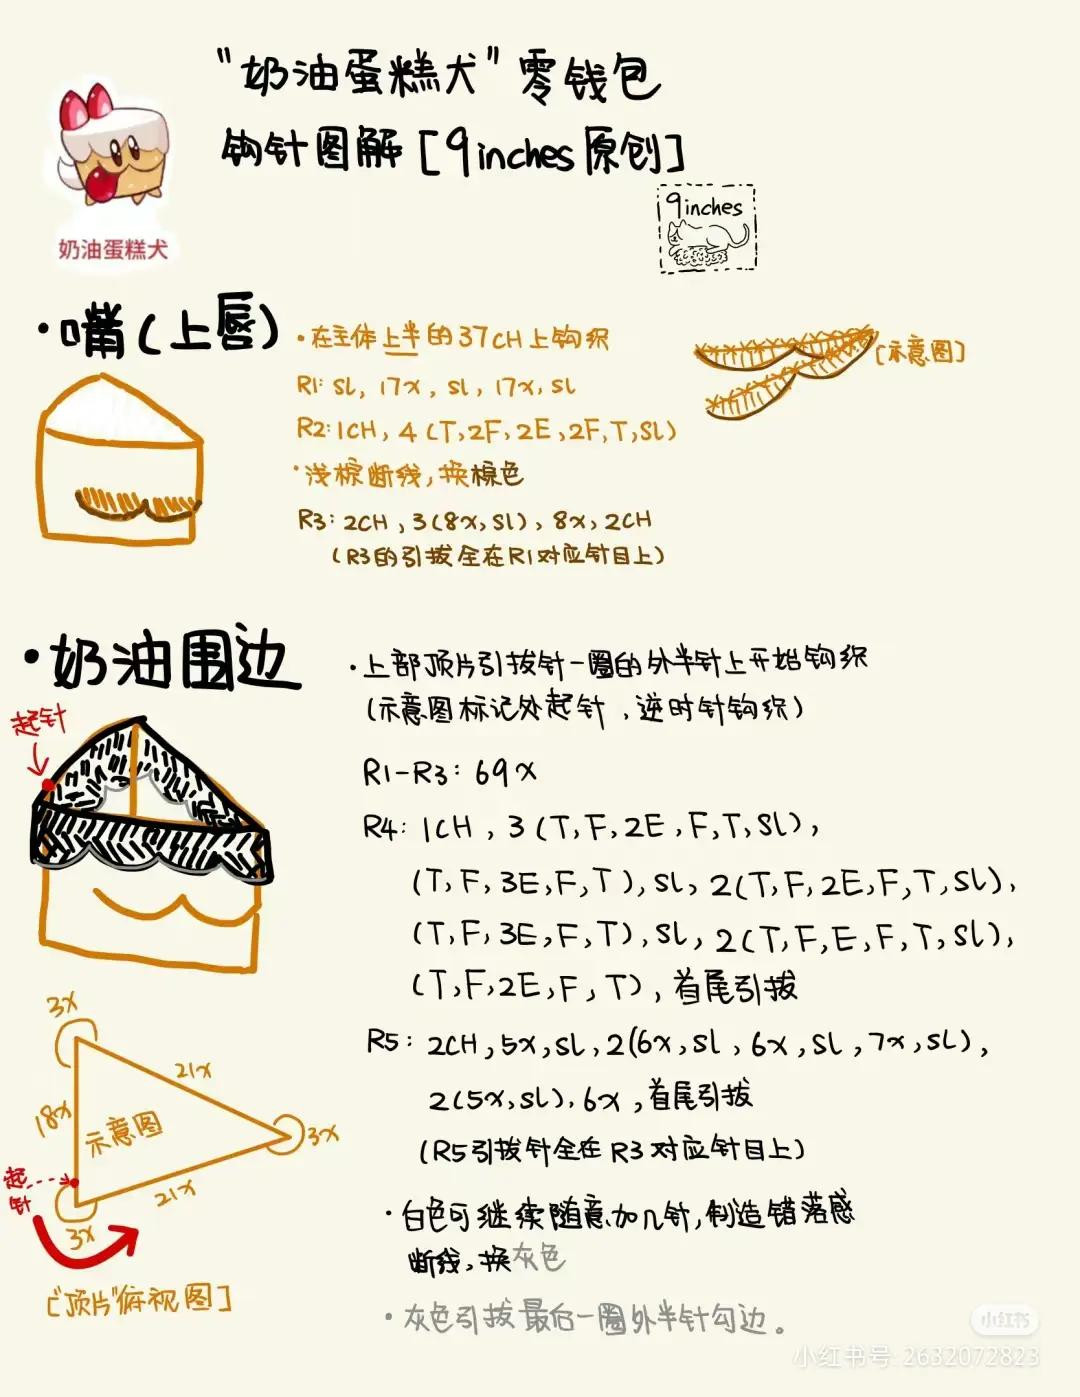 "奶油蛋糕犬"零钱包
钩针图解[9inches原创]
9inches
奶油蛋糕犬
·嘴(上唇)
·在主体上半的37CH上钩织
[示意图]
R1: SL, 17X, SL, 17X, SL
R2: 1CH, 4(T,2F,2E,2F,T,SL)
·浅棕断线,换棕色
R3: 2CH, 3(8X,SL), 8X, 2CH
(R3的引拔全在R1对应针目上)
·奶油围边
·上部顶片引拔针一圈的外半针上开始钩织
(示意图标记处起针,逆时针钩织)
起针
R1-R3: 69X
R4: 1CH, 3(T,F,2E,F,T,SL),
(T,F,3E,F,T),SL, 2(T,F,2E,F,T,SL),
(T,F,3E,F,T),SL, 2(T,F,E,F,T,SL),
(T,F,2E,F,T),首尾引拔
R5: 2CH,5X,SL,2(6X,SL,6X,SL,7X,SL),
2(5X,SL),6X,首尾引拔
(R5引拔针全在R3对应针目上)
3X
21X
18X
示意图
3X
起针
21X
3X
["顶片"俯视图]
·白色可继续随意加几针,制造错落感
断线,换灰色
·灰色引拔最后一圈外半针勾边。
小红书
小红书号:2632072823